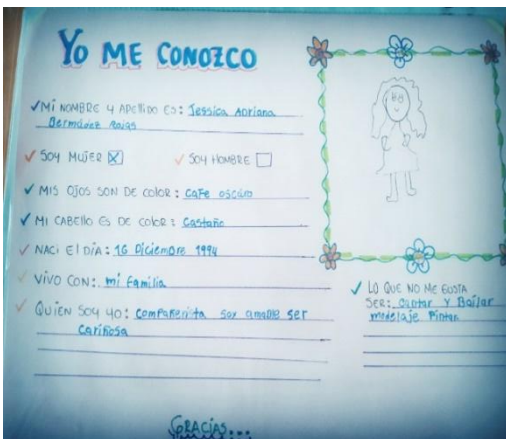 YO ME CONOZCO
✓ Mi NOMBRE Y APELLIDO ES: Jessica Adriana
Bermúdez Rojas
✓ SOY MUJER ☒ ✓ SOY HOMBRE ☐
✓ MIS OJOS SON DE COLOR: Cafe oscuro
✓ MI CABELLO ES DE COLOR: Castaño
✓ NACI El DÍA: 16 Diciembre 1994
✓ VIVO CON: mi familia
✓ QUIEN SOY YO: Compañerista soy amable ser
Cariñosa
✓ LO QUE NO ME GUSTA
SER: Cantar Y Bailar
modelaje Pintar
GRACIAS...